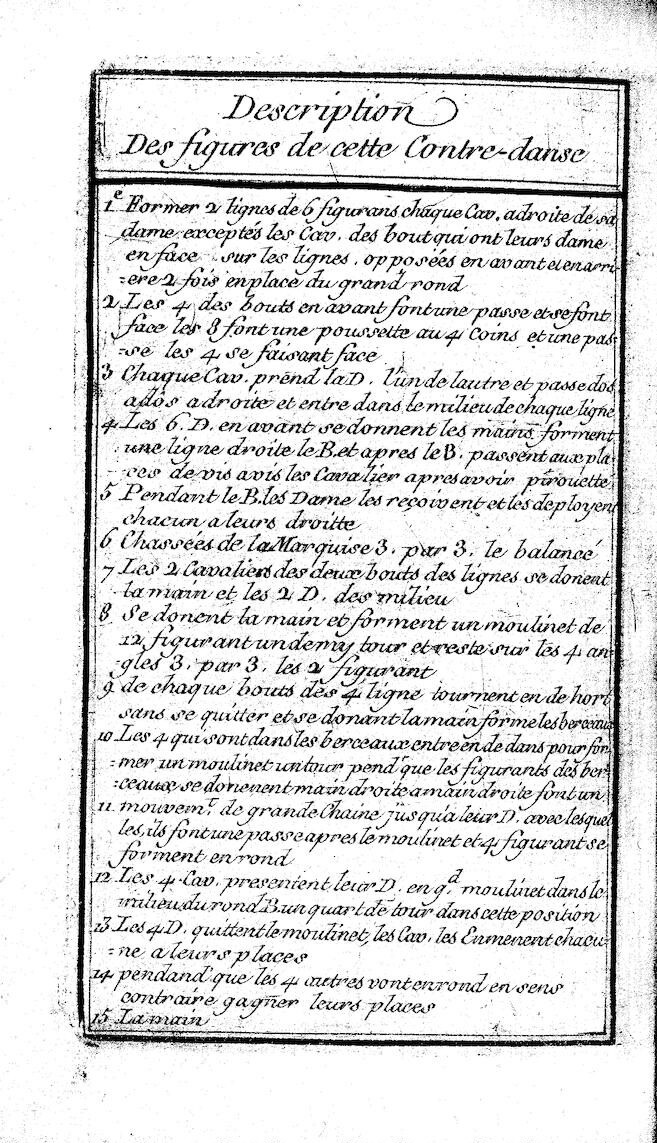 Description
Des figures de cette Contre-danse
1.e Former 2 lignes de 6 figurans chaque Cav. adroite de sa
dame exceptés les Cav. des bout qui ont leurs dame
en face sur les lignes opposées en avant et en arri-
=ere 2 fois en place du grand rond
2 Les 4 des bouts en avant font une passe et se font
face les 8 font une poussette au 4 Coins et une pas-
=se les 4 se faisant face
3 Chaque Cav. prend la D. l'un de lautre et passe dos
a dos a droite et entre dans le milieu de chaque ligne
4 Les 6 D. en avant se donnent les mains forment
une ligne droite le B. et apres le B. passent aux pla-
=ces de vis avis les Cavalier apres avoir pirouette
5 Pendant le B. les Dame les reçoivent et les deployent
chacun a leurs droitte
6 Chassées de la Marquise 3. par 3. le balancé
7 Les 2 Cavaliers des deux bouts des lignes se donent
la main et les 2 D. des milieu
8 Se donent la main et forment un moulinet de
12 figurant un demy tour et reste sur les 4 an-
=gles 3. par 3. les 2 figurant
9 de chaque bouts des 4 ligne tournent en de hort
sans se quitter et se donant la main forme les berceaux
10 Les 4 qui sont dans les berceaux entre en de dans pour for-
=mer un moulinet un tour pend.t que les figurants des ber-
=ceaux se donenent main droite a main droite font un
11 mouvem.t de grande Chaine jusqu'a leur D. avec lesquel
les, ils font une passe apres le moulinet et 4 figurant se
forment en rond
12 Les 4 Cav. presentent leur D. en g.d moulinet dans le
milieu du rond B. un quart de tour dans cette position
13 Les 4 D. quittent le moulinet, les Cav. les Enmenent chacu-
=ne a leurs places
14 pendand que les 4 autres vont en rond en sens
contraire gagñer leurs places
15 La main